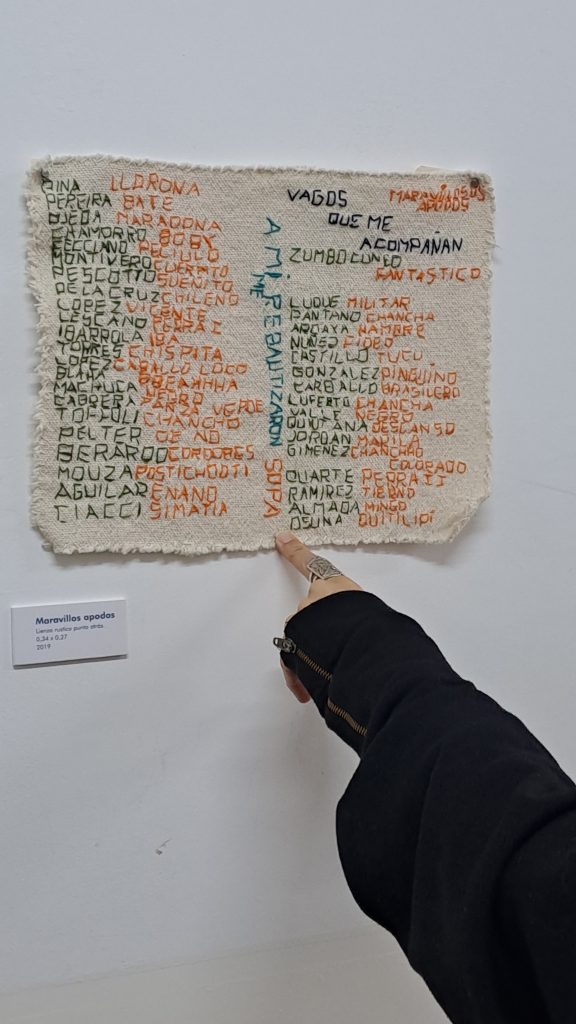 PINA LLORONA
PEREIRA BATE
OJEDA MARADONA
CHAMORRO BOBY
FECCIANO RECIULO
MONTIVERO CUERATO
PESCOTTO SUEÑITO
DE LA CRUZ CHILENO
LOPEZ VICENTE
LESCANO
IBARROLA IBA
TORRES CHISPITA
LOPEZ CABALLO LOCO
BLAEZ
MACHUCA
CABRERA NEGRO
TOFFOLI LANZA VERDE
CHANCHO
PELTER DE ÑO
BERARDO CORDOBES
MOUZA POSTICHOOTI
AGUILAR ENANO
CIACCI SIMATIA
A MÍ ME REBAUTIZARON SOPA
VAGOS
QUE ME
ACOMPAÑAN
MARAVILOSOS
APODOS
ZUMBO CUNEO
FANTASTICO
LUQUE MILITAR
PANTANO CHANCHA
ARDAYA HAMBRE
NUÑEZ FIDEO
CASTILLO TUCU
GONZALEZ PINGUINO
CARBALLO BRASILERO
LUFERTO CHANCHA
VALLE NEGRO
QUINTANA DESCANSO
JORDAN MANILA
GIMENEZ CHANCHAO
COLORADO
DUARTE PEDRA II
RAMIREZ TIERNO
ALMADA MINGO
OSUNA QUITILIPI
Maravillos apodos
Lienzo rustico punto atrás.
0,34 x 0,27
2019